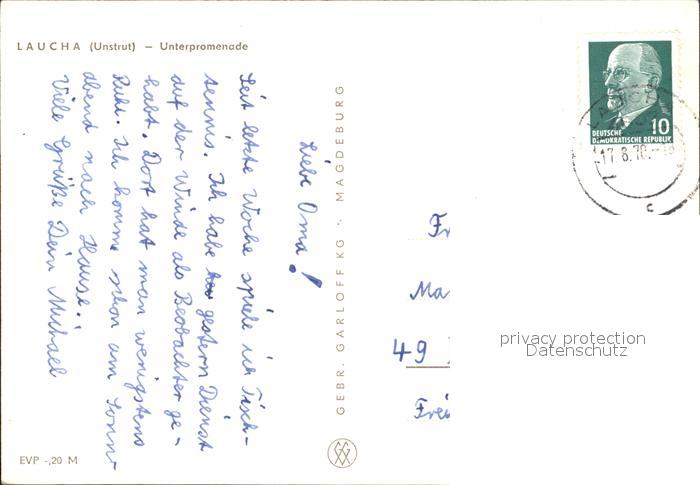 LAUCHA (Unstrut) — Unterpromenade
Liebe Oma!
Seit letzte Woche spiele ich Tisch-
tennis. Ich habe gestern Dienst
auf der Winde als Beobachter ge-
habt. Dort hat man wenigstens
Ruhe. Ich komme schon am Sonn-
abend nach Hause.
Viele Grüße Dein Michael
EVP -,20 M
GEBR. GARLOFF KG · MAGDEBURG
10
DEUTSCHE
DEMOKRATISCHE REPUBLIK
17.8.70.
c
Fr
Ma
49
Frei
privacy protection
Datenschutz